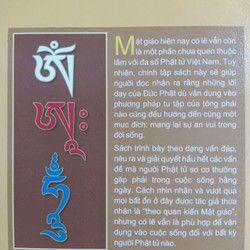 ༀ
ཨཱཿ
ཧཱུྃ
Mật giáo hiện nay có lẽ vẫn còn
là một phần chưa quen thuộc
lắm với đa số Phật tử Việt Nam. Tuy
nhiên, chính tập sách này sẽ giúp
người đọc nhận ra rằng những lời
dạy của Đức Phật dù vận dụng vào
phương pháp tu tập của tông phái
nào cũng đều hướng đến cùng một
mục đích: mang lại sự an vui trong
đời sống.
Sách trình bày theo dạng vấn đáp,
nêu ra và giải quyết hầu hết các vấn
đề mà người Phật tử sơ cơ thường
gặp phải trong cuộc sống hằng
ngày. Cách nhìn nhận và vượt qua
mọi bất ổn ở đây được tác giả thừa
nhận là “theo quan kiến Mật giáo”,
nhưng có lẽ vẫn là phù hợp để vận
dụng vào cuộc sống đối với bất kỳ
người Phật tử nào.